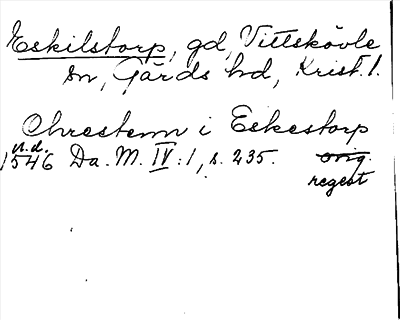 Eskilstorp, gd, Vittskövle
sn, Gärds hd, Krist. l.
Chrestenn i Eskestorp
n.d.
1546 Da. M. IV:1, s. 235. orig.
regest